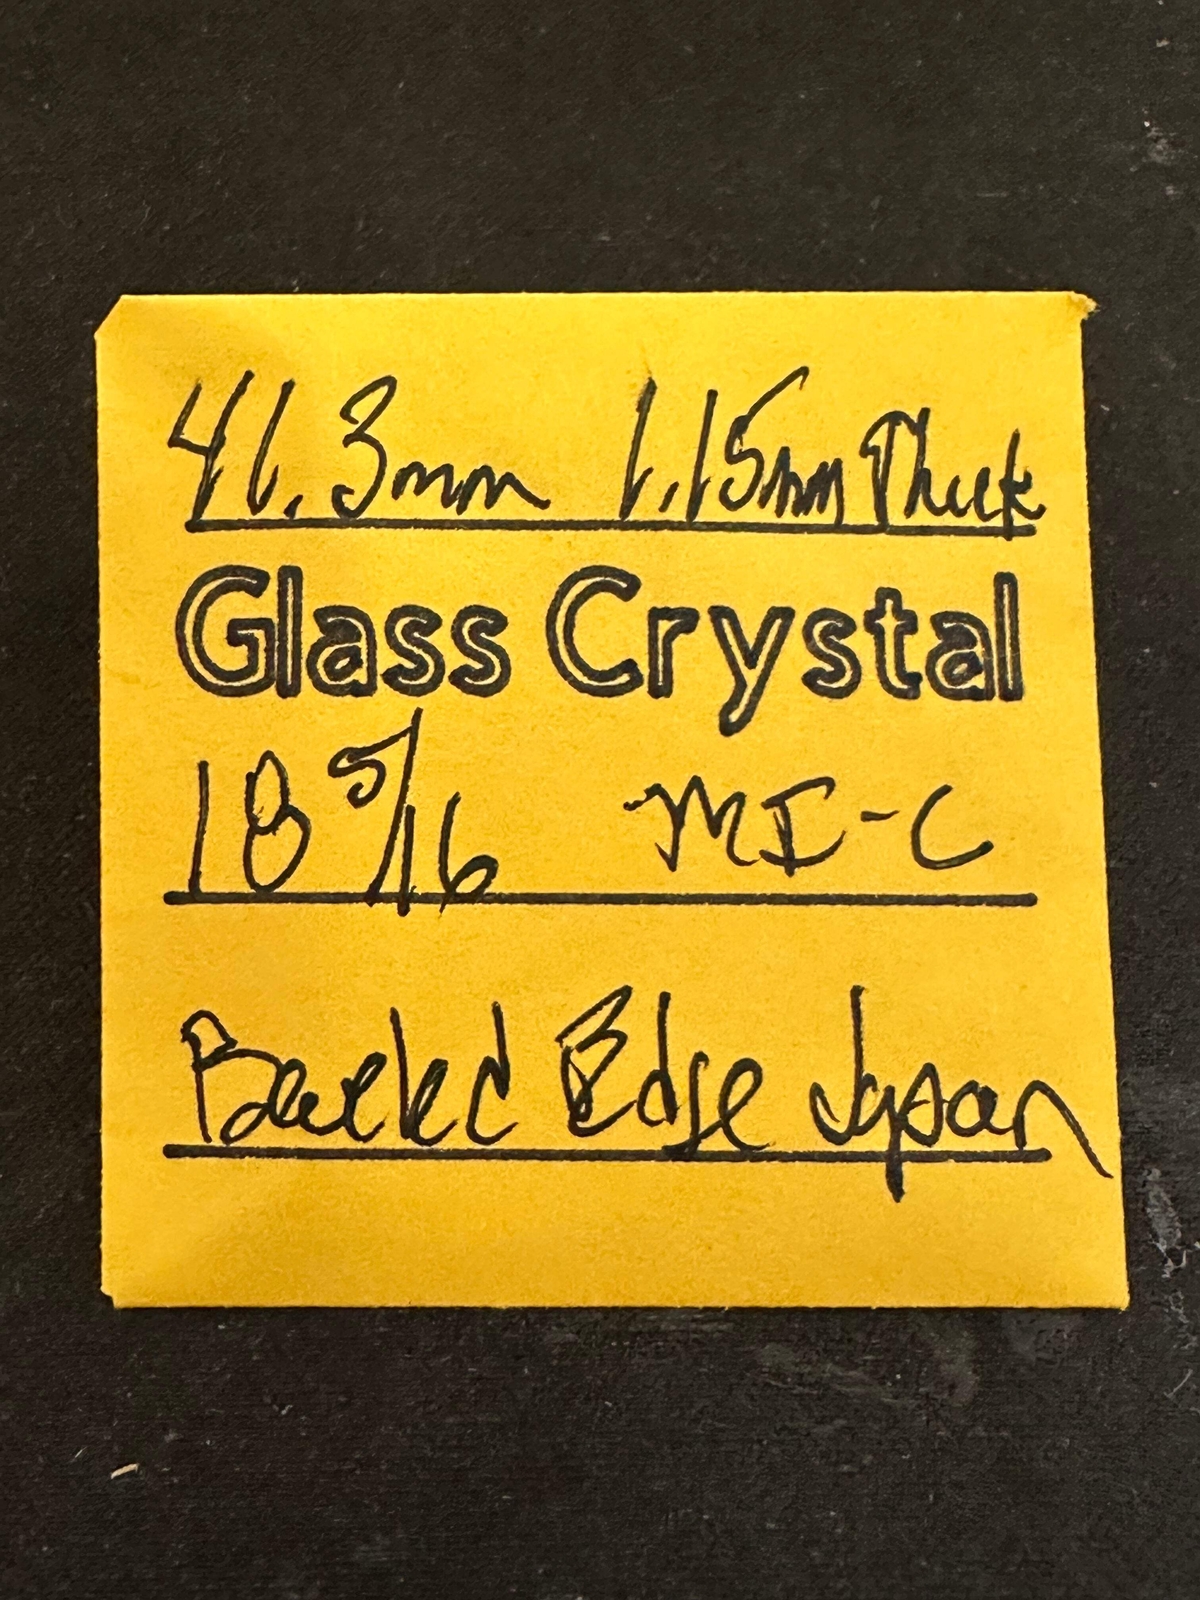 41.3mm 1.15mm Thick
Glass Crystal
18 5/16 MI-C
Beveled Edge Japan